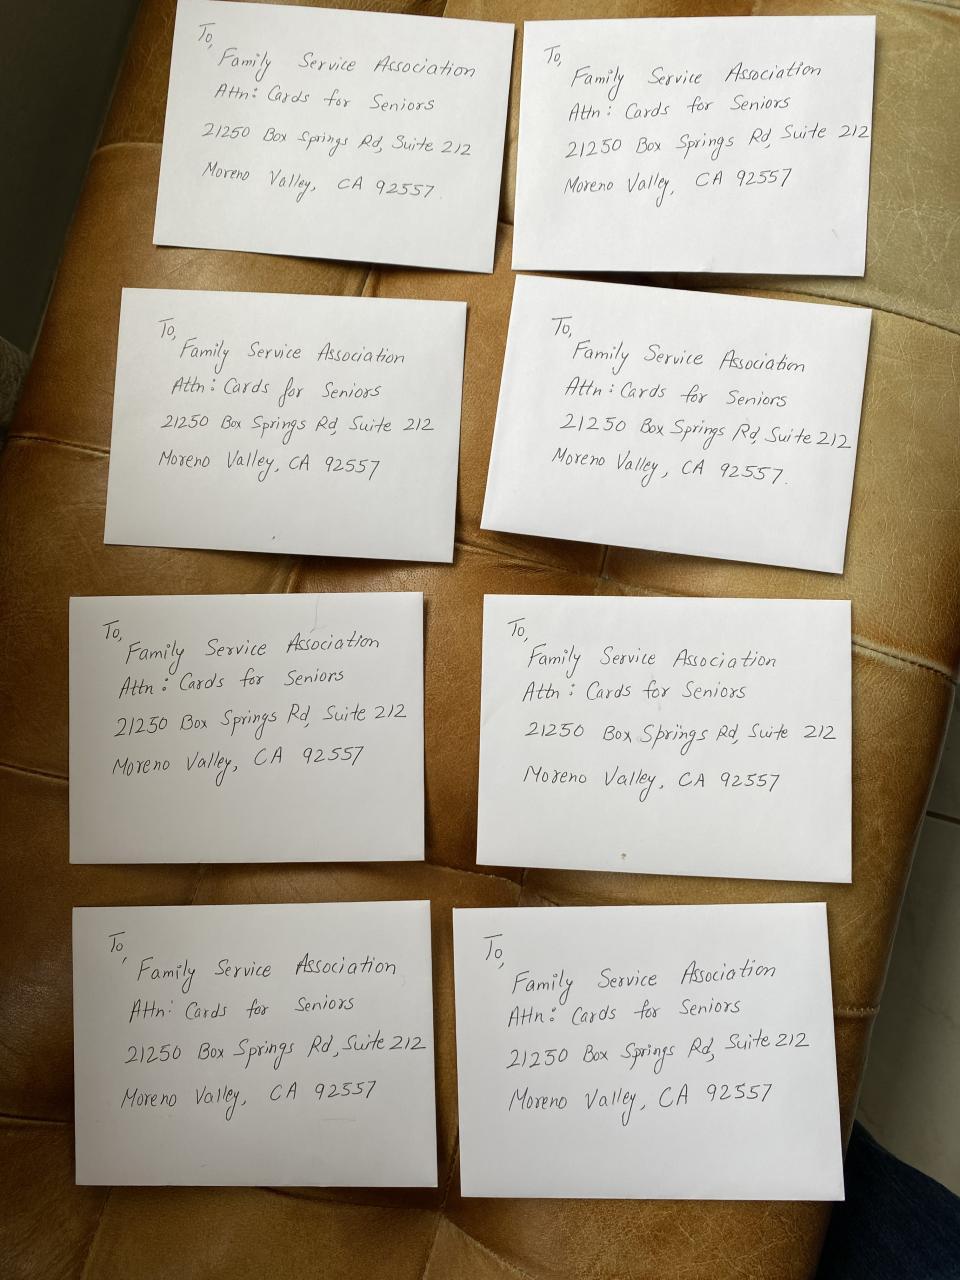 To,
Family Service Association
Attn: Cards for Seniors
21250 Box Springs Rd, Suite 212
Moreno Valley, CA 92557.
To,
Family Service Association
Attn: Cards for Seniors
21250 Box Springs Rd, Suite 212
Moreno Valley, CA 92557
To,
Family Service Association
Attn: Cards for Seniors
21250 Box Springs Rd, Suite 212
Moreno Valley, CA 92557
To,
Family Service Association
Attn: Cards for Seniors
21250 Box Springs Rd, Suite 212
Moreno Valley, CA 92557.
To,
Family Service Association
Attn: Cards for Seniors
21250 Box Springs Rd, Suite 212
Moreno Valley, CA 92557
To,
Family Service Association
Attn: Cards for Seniors
21250 Box Springs Rd, Suite 212
Moreno Valley, CA 92557
To,
Family Service Association
Attn: Cards for Seniors
21250 Box Springs Rd, Suite 212
Moreno Valley, CA 92557
To,
Family Service Association
Attn: Cards for Seniors
21250 Box Springs Rd, Suite 212
Moreno Valley, CA 92557